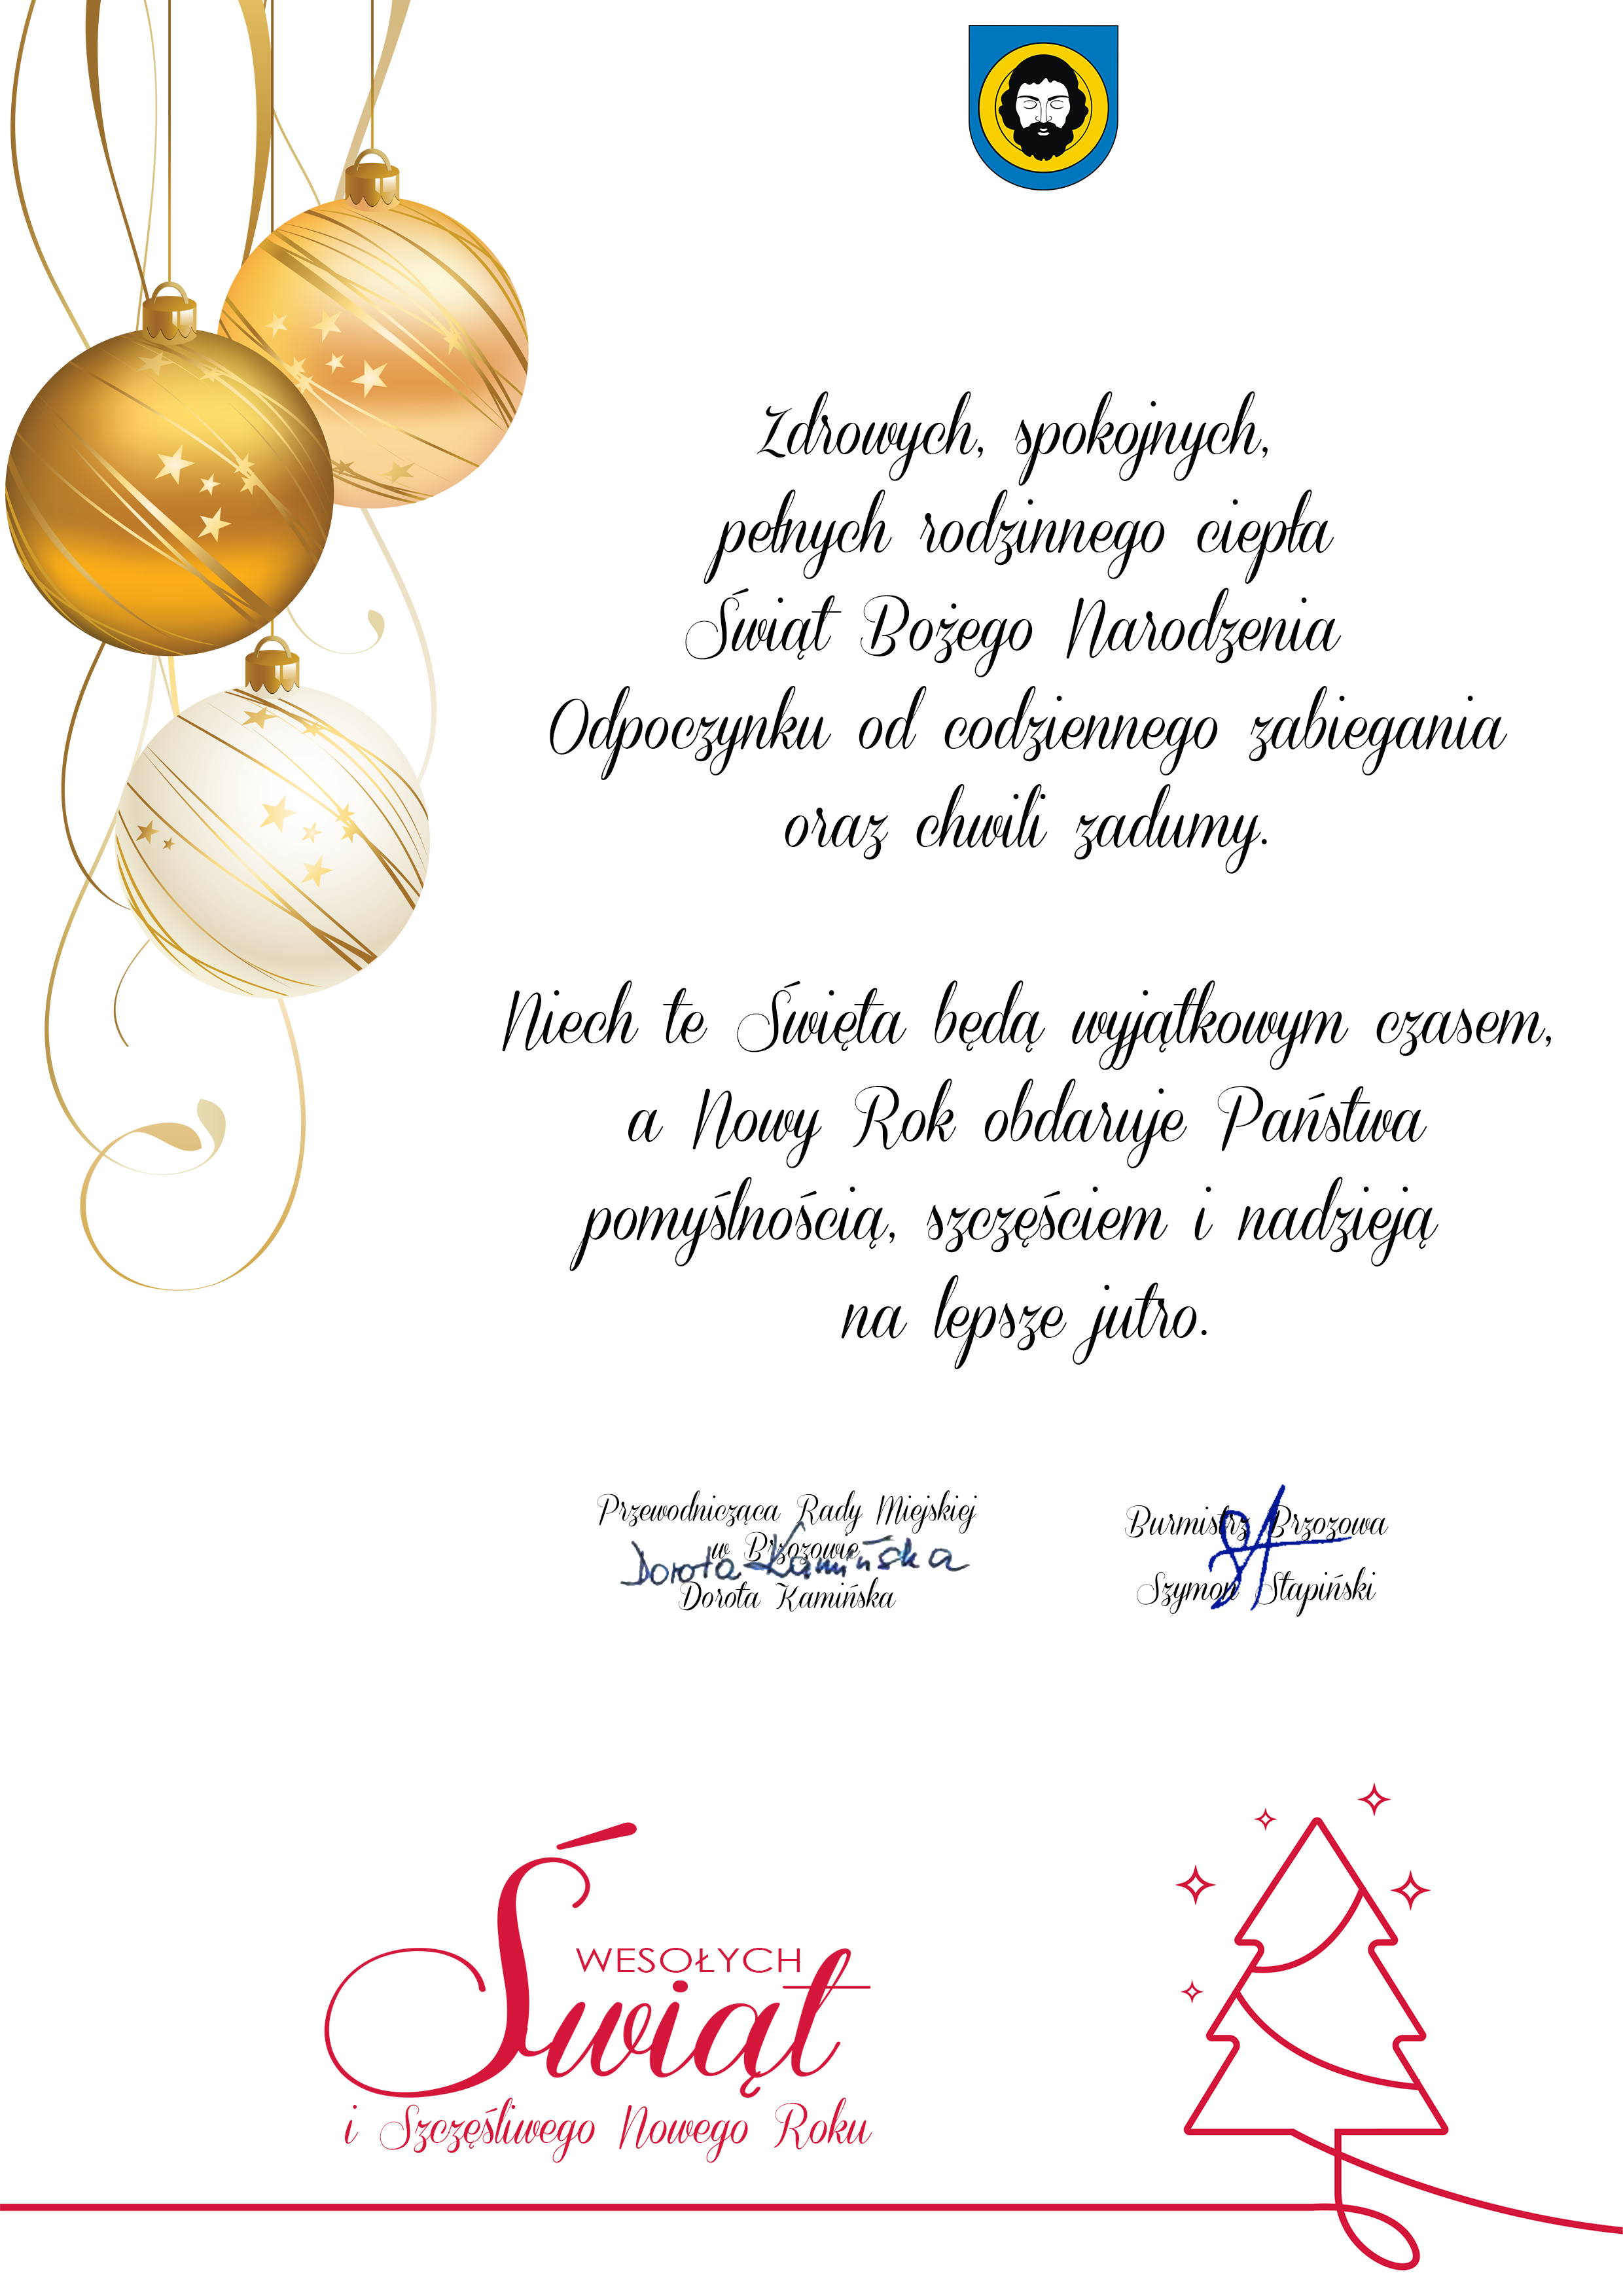 Zdrowych, spokojnych,
pełnych rodzinnego ciepła
Świąt Bożego Narodzenia
Odpoczynku od codziennego zabiegania
oraz chwili zadumy.
Niech te Święta będą wyjątkowym czasem,
a Nowy Rok obdaruje Państwa
pomyślnością, szczęściem i nadzieją
na lepsze jutro.
Przewodnicząca Rady Miejskiej
w Brzozowie
Dorota Kamińska
Dorota Kamińska
Burmistrz Brzozowa
Szymon Stapiński
WESOŁYCH
Świąt
i Szczęśliwego Nowego Roku